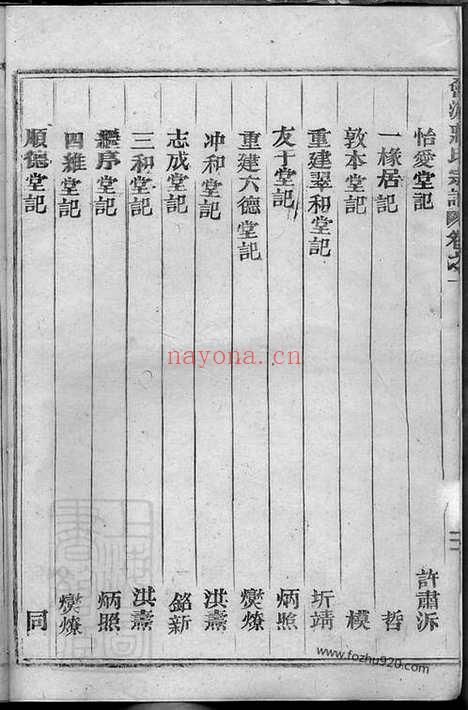 怡愛堂記 許肅泝
一椽居記 哲
敦本堂記 模
重建翠和堂記 圻靖
友于堂記 炳照
重建六德堂記 爕燎
冲和堂記 洪燾
志成堂記 銘新
三和堂記 洪燾
堂記 炳照
四維堂記 爕燎
順德堂記 同
nayona.cn
www.fozhu920.com